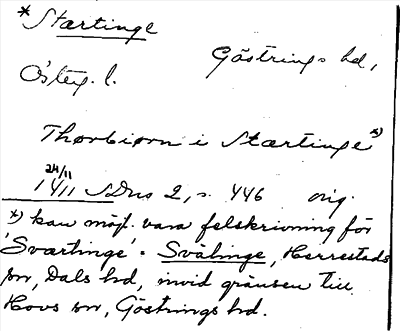 * Stærtinge
Göstrings hd,
Österg. l.
Thorbiørn i Stærtinge *)
24/11
1411 SDns 2, s. 446 orig.
*) kan möjl. vara felskrivning för
'Sværtinge' = Svälinge, Herrestads
sn, Dals hd, invid gränsen till
Hovs sn, Göstrings hd.